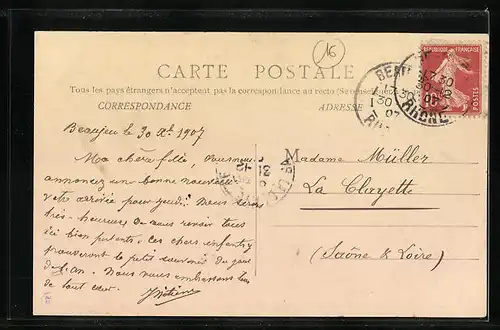 16
CARTE POSTALE
Tous les pays étrangers n'acceptent pas la correspondance au recto (Se renseigner
CORRESPONDANCE ADRESSE
REPUBLIQUE FRANÇAISE
POSTES
RHONE
Beaujeu le 30 Xbre 1907
Ma chère fille, Pour nous
annoncez une bonne nouvelle
votre arrivée pour jeudi. Nous serons
très heureux de vous revoir tous
ici bien portants. Ces chers enfants
trouveront le petit souvenir du jour
de l'an. Nous vous embrassons tous
de tout cœur.
Madame Müller
La Clayette
(Saône & Loire)